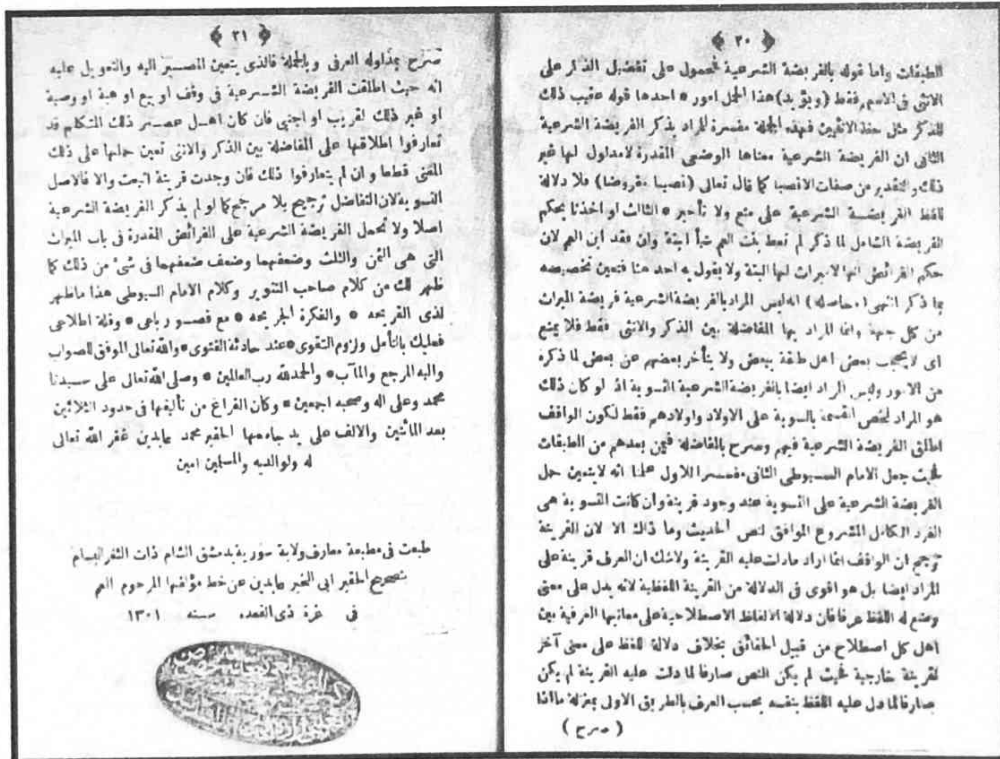 ﴿ ٣٠ ﴾
الطبقات واما قوله بالفريضة الشرعية فمحمول على تفضيل الذكر على
الانثى فى الاسم فقط (ويؤيد) هذا الحمل امور * احدها قوله عقيب ذلك
للذكر مثل حظ الانثيين فهذه الجملة مفسرة للمراد بذكر الفريضة الشرعية
الثانى ان الفريضة الشرعية معناها الوضعى المقدرة لامدلول لها غير
ذلك والتقدير من صفات الانصبا كما قال تعالى (نصيبا مفروضا) فلا دلالة
للفظ الفريضة الشرعية على منع ولا تأخير * الثالث لو اخذنا بحكم
الفريضة الشامل لما ذكر لم نعط بنت العم شيأ ابنة وان فقد ابن العم لان
حكم الفرائض انها لاميراث لها البتة ولا يقول به احد هنا فتعين تخصيصه
بما ذكر انتهى (وحاصله) انه ليس المراد بالفريضة الشرعية فريضة الميراث
من كل جهة وانما المراد بها المفاضلة بين الذكر والانثى فقط فلا يمنع
اى لا يحجب بعض اهل طبقة ببعض ولا يتأخر بعضهم عن بعض لما ذكره
من الامور وليس المراد ايضا بالفريضة الشرعية التسوية اذ لو كان ذلك
هو المراد لخص القسمة بالسوية على الاولاد واولادهم فقط لكون الواقف
اطلق الفريضة الشرعية فيهم وصرح بالمفاضلة فيمن بعدهم من الطبقات
فحيث جعل الامام السيوطى الثانى مفسرا للاول علمنا انه لا يتعين حمل
الفريضة الشرعية على التسوية عند وجود قرينة وان كانت التسوية هى
الفرد الكامل المشروع الموافق لنص الحديث وما ذاك الا لان القرينة
ترجح ان الواقف انما اراد مادلت عليه القرينة ولاشك ان العرف قرينة على
المراد ايضا بل هو اقوى فى الدلالة من القرينة اللفظية لانه يدل على معنى
وضع له اللفظ عرفا فان دلالة الالفاظ الاصطلاحية على معانيها العرفية بين
اهل كل اصطلاح من قبيل الحقائق بخلاف دلالة اللفظ على معنى آخر
لقرينة خارجية فحيث لم يكن النص صارفا لما دلت عليه القرينة لم يكن
صارفا لما دل عليه اللفظ بنفسه بحسب العرف بالطريق الاولى بمنزلة ما اذا
( صرح )
﴿ ٣١ ﴾
صرح بمدلوله العرفى وبالجملة فالذى يتعين المصير اليه والتعويل عليه
انه حيث اطلقت الفريضة الشرعية فى وقف او بيع او هبة او وصية
او غير ذلك لقريب او اجنبى فان كان اهل عصر ذلك المتكلم قد
تعارفوا اطلاقها على المفاضلة بين الذكر والانثى تعين حملها على ذلك
المعنى قطعا و ان لم يتعارفوا ذلك فان وجدت قرينة اتبعت والا فالاصل
التسوية لان التفاضل ترجيح بلا مرجح كما لو لم يذكر الفريضة الشرعية
اصلا ولا تحمل الفريضة الشرعية على الفرائض المقدرة فى باب الميراث
التى هى الثمن والثلث وضعفهما وضعف ضعفهما فى شئ من ذلك كما
ظهر لك من كلام صاحب التنوير وكلام الامام السيوطى هذا ماظهر
لذى القريحه * والفكرة الجريحه * مع قصور باعى * وقلة اطلاعى
فعليك بالتأمل ولزوم التقوى * عند حادثة الفتوى * والله تعالى الموفق للصواب
واليه المرجع والمآب * والحمد لله رب العالمين * وصلى الله تعالى على سيدنا
محمد وعلى اله وصحبه اجمعين * وكان الفراغ من تأليفها فى حدود الثلاثين
بعد المأتين والالف على يد جامعها الحقير محمد عابدين غفر الله تعالى
له ولوالديه والمسلمين امين
طبعت فى مطبعة معارف ولاية سورية بدمشق الشام ذات الثغر البسام
بتصحيح الحقير ابى الخير عابدين عن خط مؤلفها المرحوم العم
فى غرة ذى القعده سنه ١٣٠١